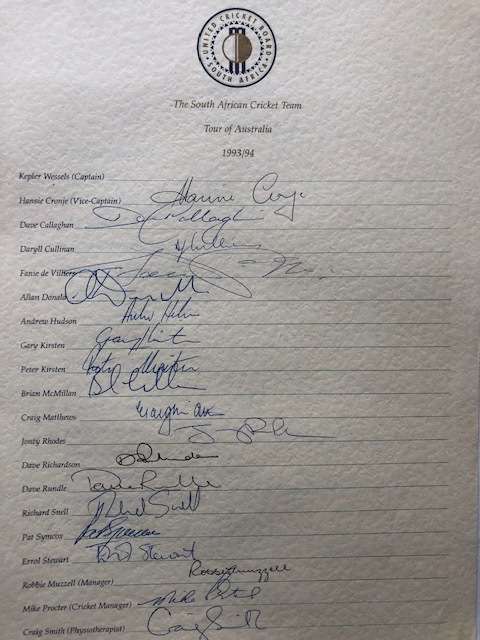 UNITED CRICKET BOARD
SOUTH AFRICA
The South African Cricket Team
Tour of Australia
1993/94
Kepler Wessels (Captain)
Hansie Cronje (Vice-Captain) Hansie Cronje
Dave Callaghan D Callaghan
Daryll Cullinan
Fanie de Villiers
Allan Donald
Andrew Hudson
Gary Kirsten Gary Kirsten
Peter Kirsten
Brian McMillan
Craig Matthews
Jonty Rhodes
Dave Richardson
Dave Rundle Dave Rundle
Richard Snell Richard Snell
Pat Symcox Pat Symcox
Errol Stewart Errol Stewart
Robbie Muzzell (Manager) Robbie Muzzell
Mike Procter (Cricket Manager) Mike Procter
Craig Smith (Physiotherapist) Craig Smith